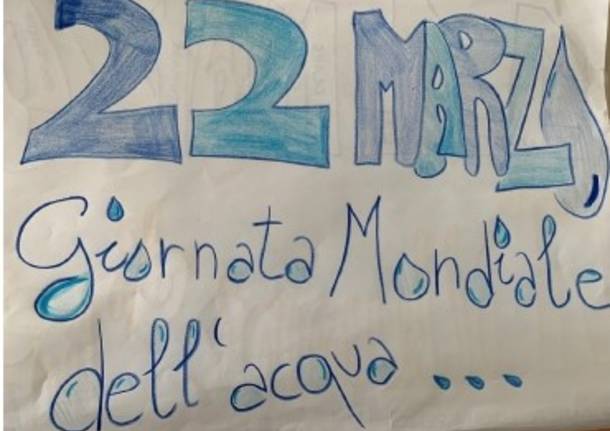 22 MARZO
Giornata Mondiale
dell'acqua...